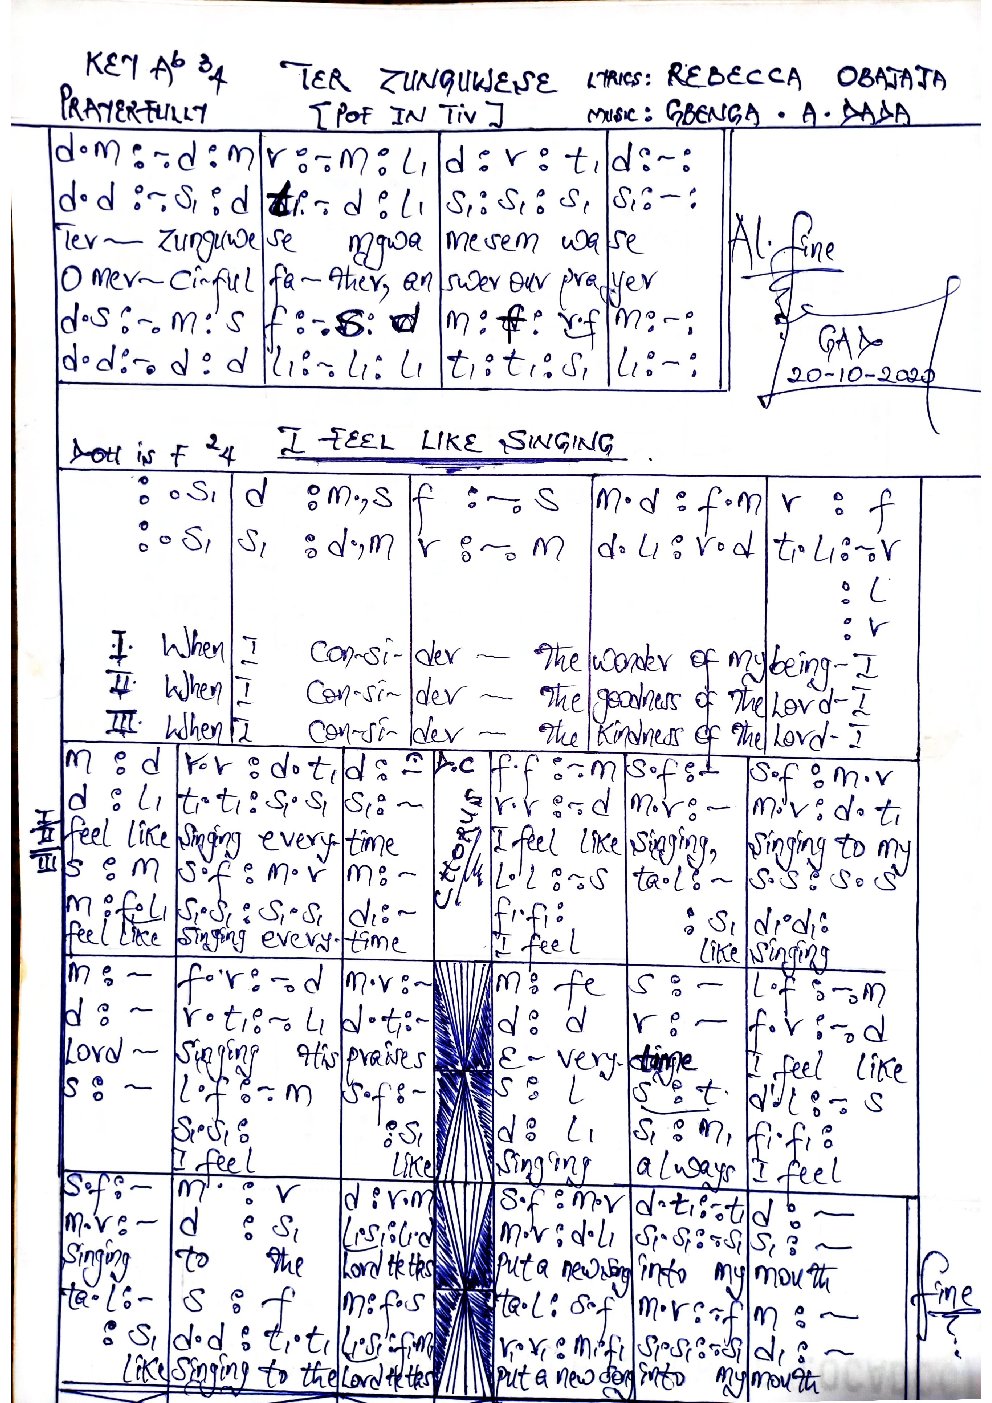 KEY Ab 3/4 TER ZUNGUWESE LYRICS: REBECCA OBAJAJA
PRAYERFULLY [POF IN TIV] MUSIC: GBENGA . A. DADA
d.m :-.d : m | r :-.m : l₁ | d : r : t₁ | d :- :
d.d :-.s₁ : d | t₁ :-.d : l₁ | s₁ : s₁ : s₁ | s₁ :- :
Ter — Zunguwe se mgwa mesem wa se
O mer - ci-ful fa - ther, an swer our pra yer
d.s :-.m : s | f :-.s : d | m : f : r.f | m :- :
d.d :-.d : d | l₁ :-.l₁ : l₁ | t₁ : t₁ : s₁ | l₁ :- :
Al. fine
GAD
20-10-2020
DOH is F 2/4 I FEEL LIKE SINGING
: .s₁ | d : m.,s | f :-.s | m.d : f.m | r : f
: .s₁ | s₁ : d.,m | r :-.m | d.l₁ : r.d | t₁.l₁ :-.r
: l
: r
I. When I con-si- dev — the wonder of my being - I
II. When I con-si- dev — the goodness of the Lord - I
III. When I con-si- dev — the kindness of the Lord - I
m : d | r.r : d.t₁ | d :- | D.C | f.f :-.m | s.f :- | s.f : m.r
d : l₁ | t₁.t₁ : s₁.s₁ | s₁ :- | CHORUS | r.r :-.d | m.r :- | m.r : d.t₁
I II III feel like singing every-time I feel like singing, singing to my
s : m | s.f : m.r | m :- | l.l :-.s | ta.l :- | s.s : s.s
m : f.l₁ | s₁.s₁ : s₁.s₁ | d₁ :- | f₁.f₁ : | : s₁ | d₁.d₁ :
feel like singing every-time I feel like singing
m :- | f.r :-.d | m.r :- | m : fe | s :- | l.f :-.m
d :- | r.t₁ :-.l₁ | d.t₁ :- | d : d | r :- | f.r :-.d
Lord — singing His praises E - very-time I feel like
s :- | l.f :-.m | s.f :- | s : l | s : t | d'.l :-.s
s₁.s₁ : | : s₁ | d : l₁ | s₁ : m₁ | f₁.f₁ :
I feel like singing always I feel
s.f :- | m : r | d : r.m | s.f : m.r | d.t₁ :-.t₁ | d :-
m.r :- | d : s₁ | l₁.s₁ : l₁.d | m.r : d.l₁ | s₁.s₁ :-.s₁ | s₁ :-
singing to the Lord He has put a new song into my mouth
ta.l :- | s : f | m : f.s | ta.l : s.f | m.r :-.f | m :-
: s₁ | d.d : t₁.t₁ | l₁.s₁ : f₁.m₁ | r₁.r₁ : m₁.f₁ | s₁.s₁ :-.s₁ | d₁ :-
like singing to the Lord He has put a new song into my mouth
fine